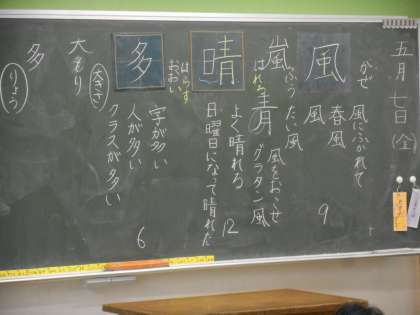 五月七日(金)
風
かぜ
風にふかれて
春風
風
9
ふう
たい風
風をおこせ
グラタン風
嵐
晴
はれる
青
よく晴れる
12
日曜日になって晴れた
はらす
多
おおい
字が多い
人が多い
クラスが多い
6
大きさ
大もり
多
りょう